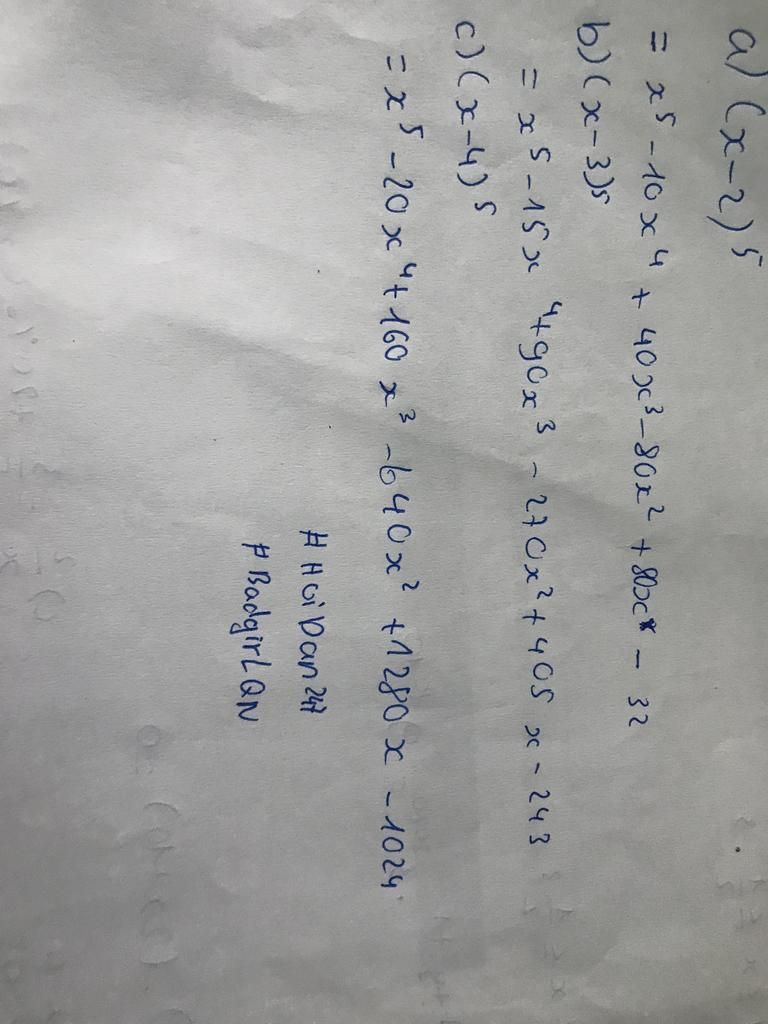 a) (x-2)⁵
= x⁵ - 10x⁴ + 40x³ - 80x² + 80x - 32
b) (x-3)⁵
= x⁵ - 15x⁴ + 90x³ - 270x² + 405x - 243
c) (x-4)⁵
= x⁵ - 20x⁴ + 160x³ - 640x² + 1280x - 1024
#HoiDan247
#BadgirlQN